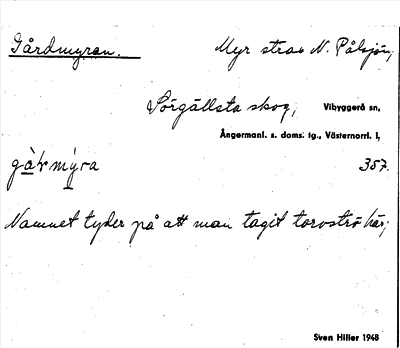 Gårdmyran. Myr strax N. Pålsjön,
Sörgällsta skog, Vibyggerå sn,
Ångermanl. s. doms. tg., Västernorrl. l,
gàrmy̆ra 357.
Namnet tyder på att man tagit torvströ här;
Sven Hiller 1948